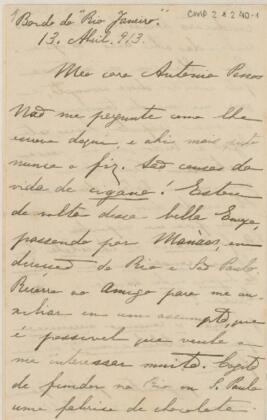 Bordo do "Rio Janeiro".
CMP 2.1.2.40-1
13. Abril. 913.
Meu caro Antonio
Não me pergunte como lhe
escrevo daqui, e ahi mais
nunca o fiz. São cousas da
vida de cigano! Estou
de volta dessa bella Europa,
passando por Manáos, em
do Rio e São Paulo.
ao amigo para me au-
xiliar em um assumpto, que
é possivel que venha a
me interessar muito. Cogito
de fundar no Rio ou S. Paulo
uma fabrica de chocolate